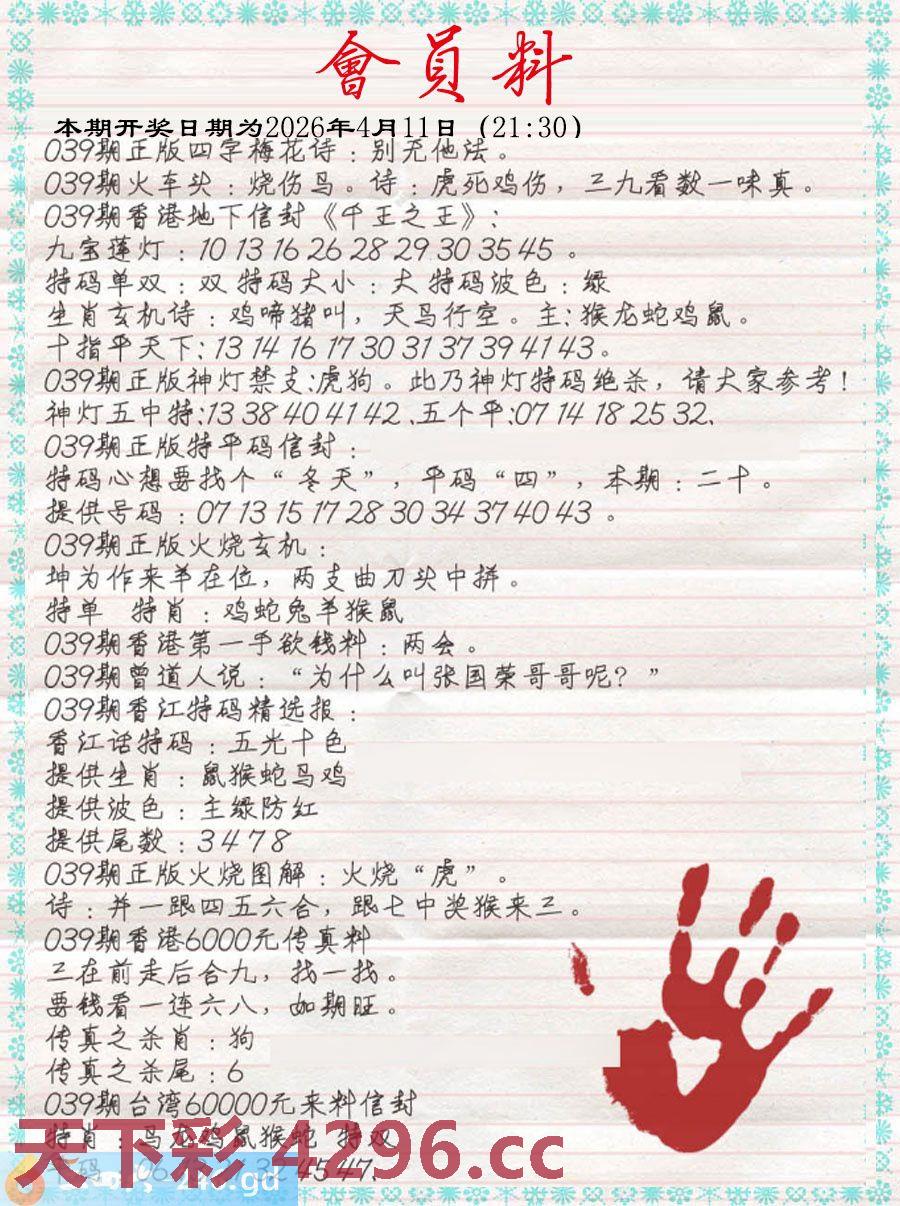 會員料
本期开奖日期为2026年4月11日（21:30）
039期正版四字梅花诗：别无他法。
039期火车头：烧伤鸟。诗：虎死鸡伤，三九看数一味真。
039期香港地下信封《千王之王》：
九宝莲灯：10 13 16 26 28 29 30 35 45 。
特码单双：双 特码大小：大 特码波色：绿
生肖玄机诗：鸡啼猪叫，天马行空。主：猴龙蛇鸡鼠。
十指平天下：13 14 16 17 30 31 37 39 41 43。
039期正版神灯禁支:虎狗。此乃神灯特码绝杀，请大家参考！
神灯五中特:13 38 40 41 42 .五个平:07 14 18 25 32.
039期正版特平码信封：
特码心想要找个“冬天”，平码“四”，本期：二十。
提供号码：07 13 15 17 28 30 34 37 40 43 。
039期正版火烧玄机：
坤为作来羊在位，两支曲刀头中拼。
特单 特肖：鸡蛇兔羊猴鼠
039期香港第一手欲钱料：两会。
039期曾道人说：“为什么叫张国荣哥哥呢？”
039期香江特码精选报：
香江话特码：五光十色
提供生肖：鼠猴蛇马鸡
提供波色：主绿防红
提供尾数：3 4 7 8
039期正版火烧图解：火烧“虎”。
诗：并一跟四五六合，跟七中奖猴来三。
039期香港6000元传真料
三在前走后合九，找一找。
要钱看一连六八，如期旺。
传真之杀肖：狗
传真之杀尾：6
039期台湾60000元来料信封
特肖：马龙鸡鼠猴蛇 特双
天下彩4296.cc
45 47.